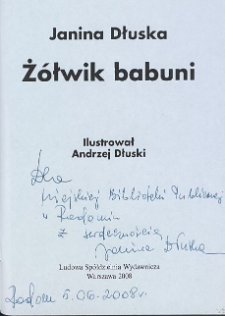 Janina Dłuska
Żółwik babuni
Ilustrował
Andrzej Dłuski
Dla
Miejskiej Biblioteki Publicznej
w Radomiu
z serdecznością
Janina Dłuska
Ludowa Spółdzielnia Wydawnicza
Warszawa 2008
Radom 5.06.2008 r.